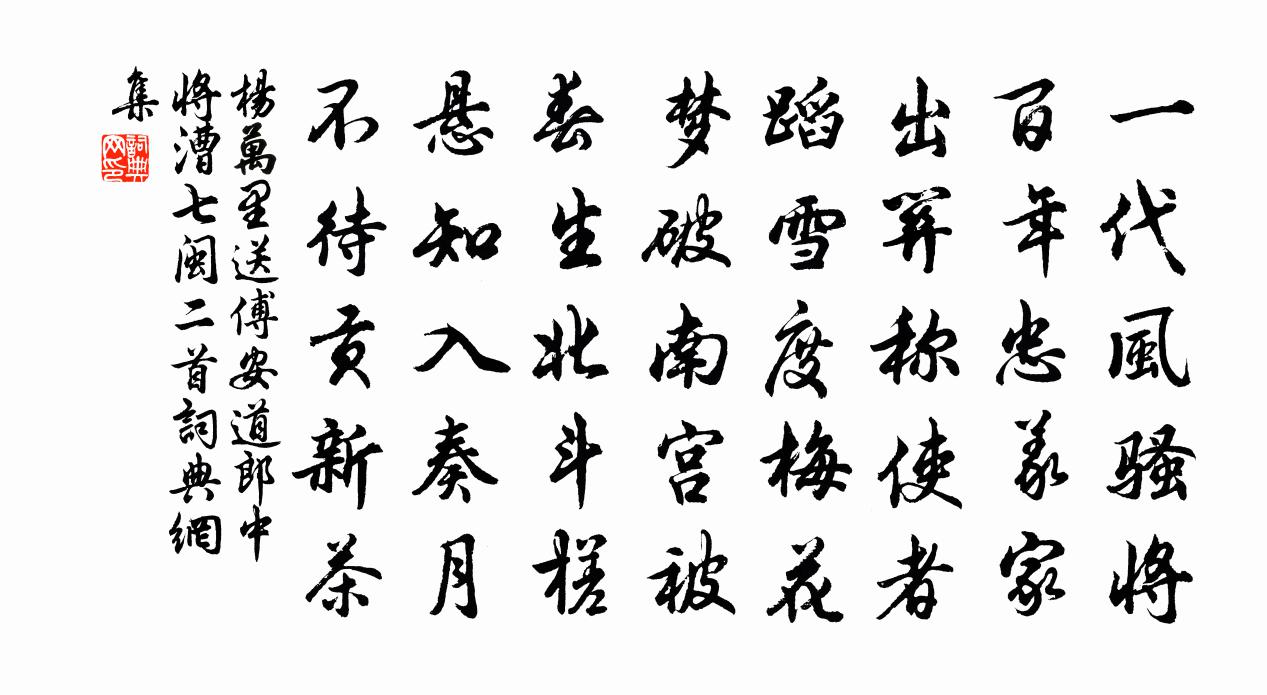 一代風骚将
百年忠义家
出笄称使者
蹈雪度梅花
梦破南宫被
春生北斗槎
悬知入奏月
不待贡新茶
楊萬里送傅安道郎中
将漕七闽二首詞典網
集
詞典網印